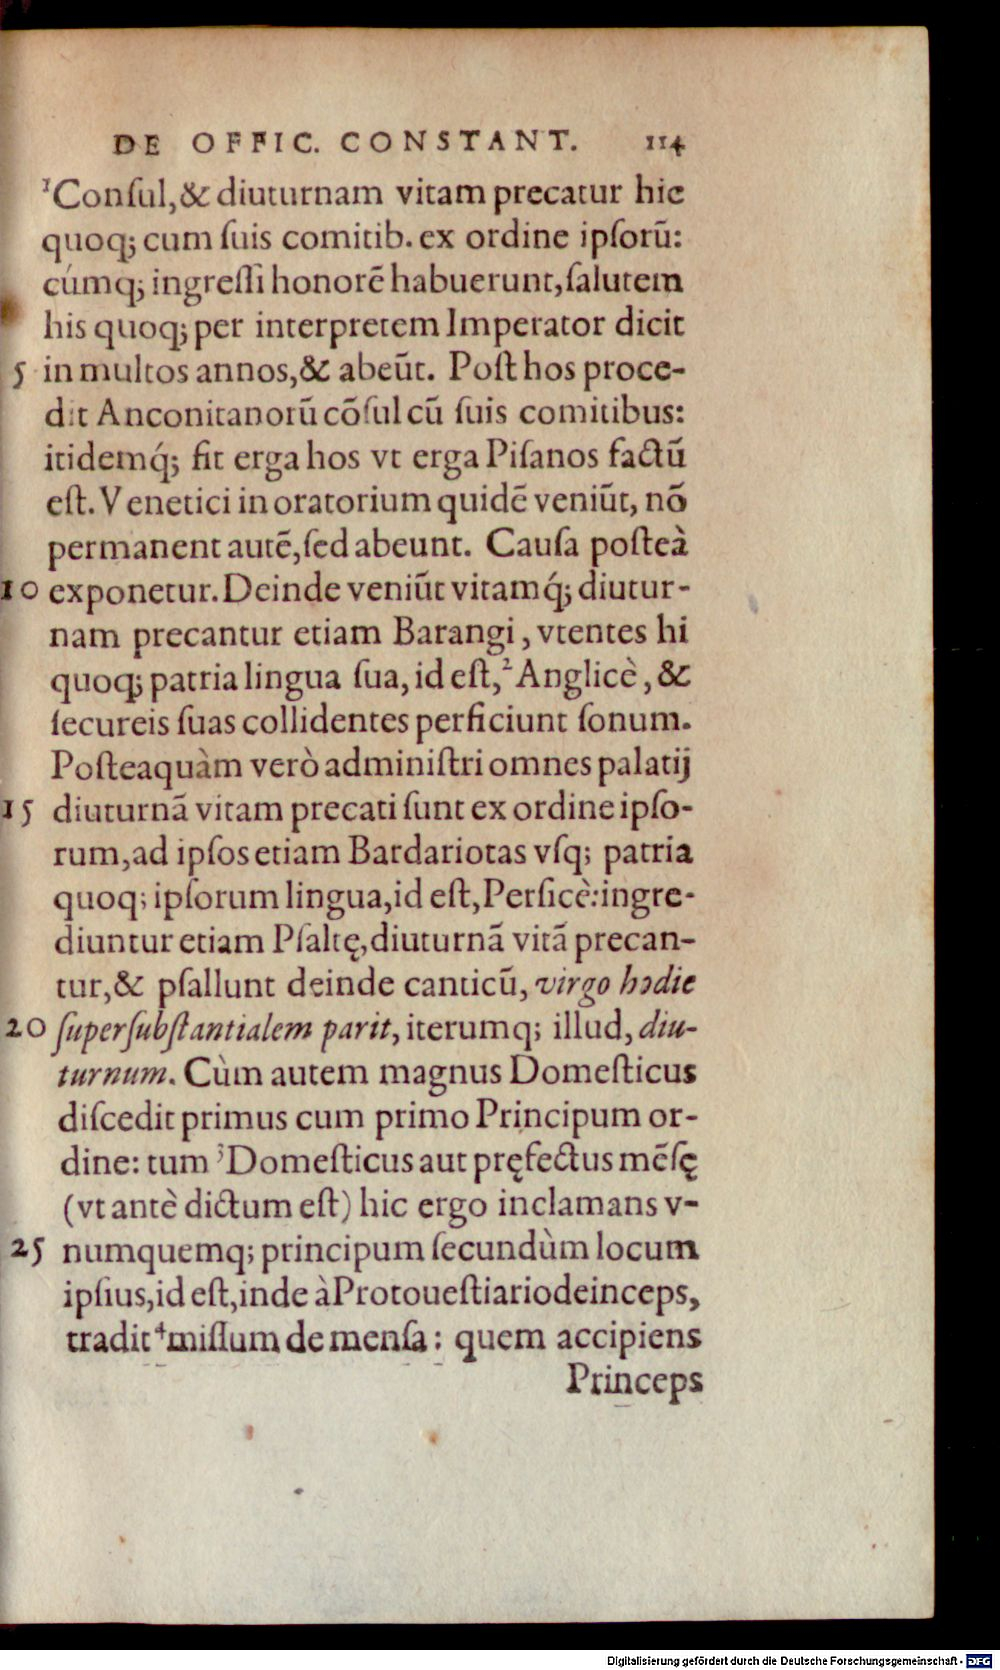 DE OFFIC. CONSTANT. 114
¹Conſul,& diuturnam vitam precatur hic
quoq; cum ſuis comitib. ex ordine ipſorũ:
cúmq; ingreſſi honorẽ habuerunt,ſalutem
his quoq; per interpretem Imperator dicit
5 in multos annos,& abeũt. Poſt hos proce-
dit Anconitanorũ cõſul cũ ſuis comitibus:
itidemq́; fit erga hos vt erga Piſanos factũ
eſt. Venetici in oratorium quidẽ veniũt, nõ
permanent autẽ,ſed abeunt. Cauſa poſteà
10 exponetur. Deinde veniũt vitamq́; diutur-
nam precantur etiam Barangi, vtentes hi
quoq; patria lingua ſua, id eſt,²Anglicè, &
ſecureis ſuas collidentes perficiunt ſonum.
Poſteaquàm verò adminiſtri omnes palatij
15 diuturnã vitam precati ſunt ex ordine ipſo-
rum,ad ipſos etiam Bardariotas vſq; patria
quoq; ipſorum lingua,id eſt,Perſicè:ingre-
diuntur etiam Pſaltę,diuturnã vitã precan-
tur,& pſallunt deinde canticũ, virgo hodie
20 ſuperſubſtantialem parit, iterumq; illud, diu-
turnum. Cùm autem magnus Domeſticus
diſcedit primus cum primo Principum or-
dine: tum ³Domeſticus aut pręfectus mẽſę
(vt antè dictum eſt) hic ergo inclamans v-
25 numquemq; principum ſecundùm locum
ipſius,id eſt,inde à Protoueſtiario deinceps,
tradit ⁴miſſum de menſa: quem accipiens
Princeps
Digitalisierung gefördert durch die Deutsche Forschungsgemeinschaft - DFG